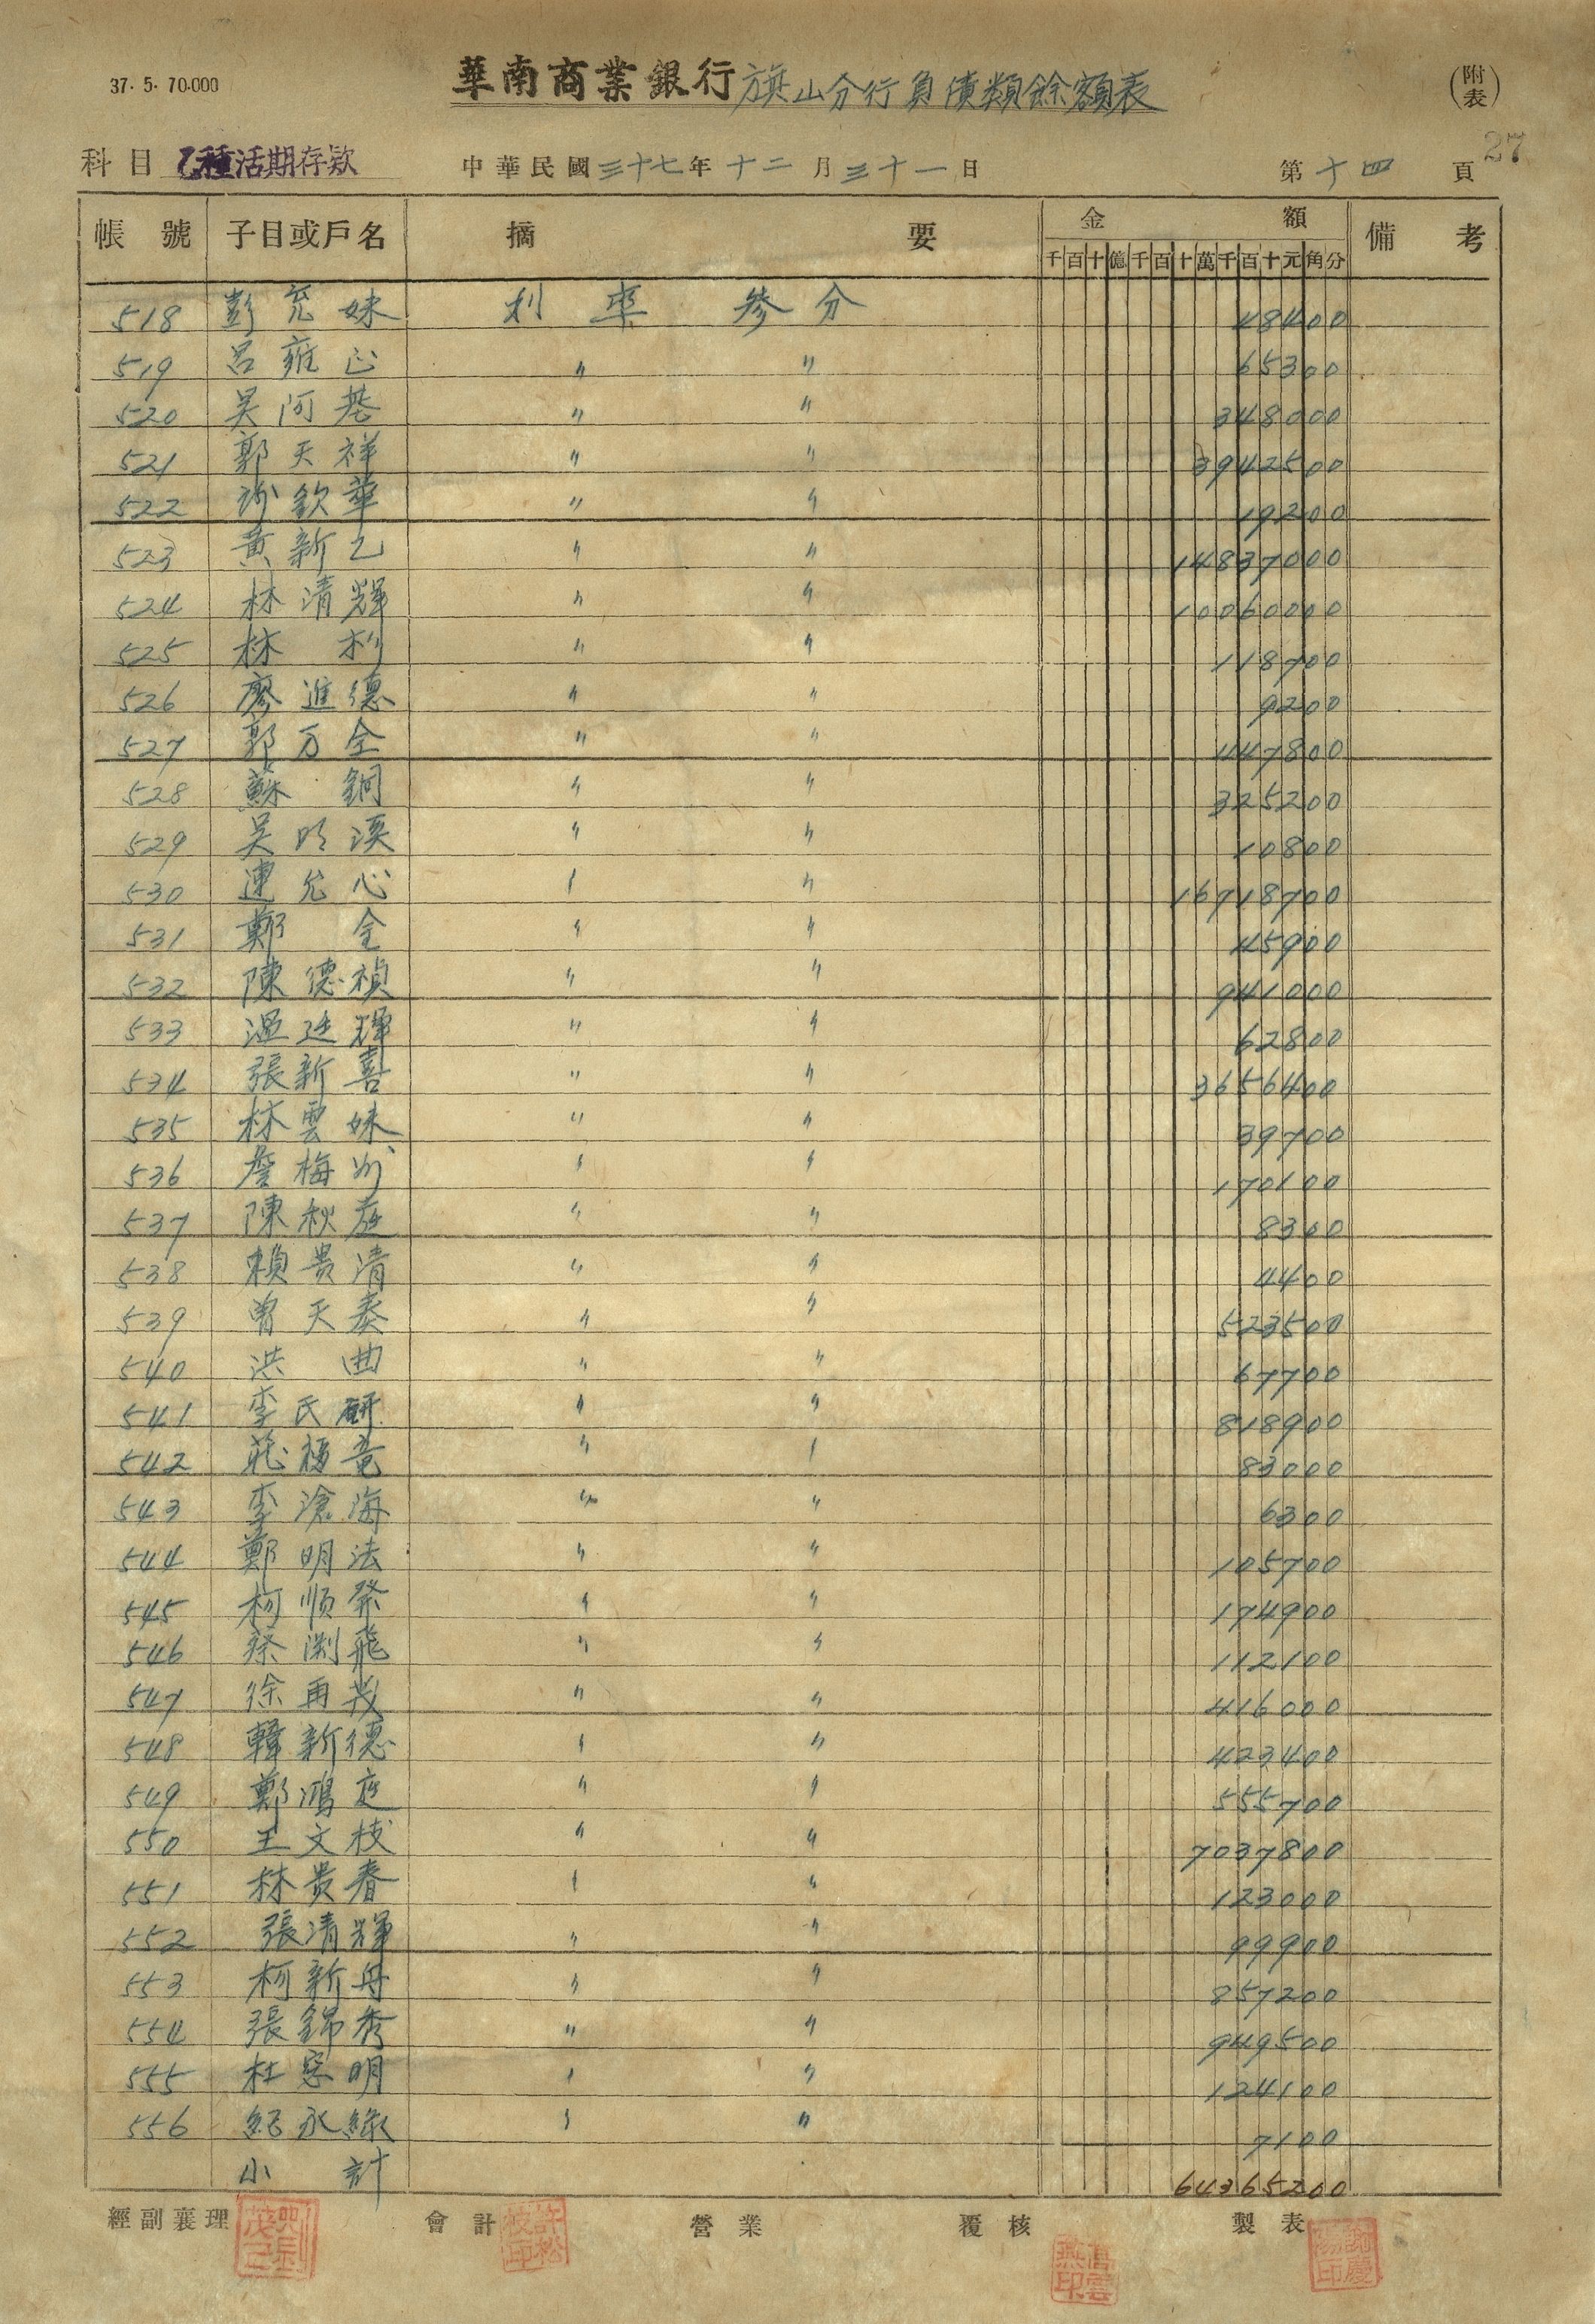 37. 5. 70.000
華南商業銀行旗山分行負債類餘額表
(附表)
27
科目 乙種活期存款 中華民國三十七年十二月三十一日 第十四頁
帳號 子目或戶名 摘要 金額 備考
千百十億千百十萬千百十元角分
518 彭 妹 利率 參分 48400
519 呂雍正 〃 〃 65300
520 吳阿基 〃 〃 348000
521 郭天祥 〃 〃 3942500
522 欽華 〃 〃 19200
523 黃新乙 〃 〃 14837000
524 林清輝 〃 〃 10060000
525 林利 〃 〃 118700
526 廖進德 〃 〃 9200
527 郭万全 〃 〃 447800
528 蘇銅 〃 〃 325200
529 吳明溪 〃 〃 10800
530 連允心 〃 〃 16718700
531 鄭全 〃 〃 45900
532 陳德禎 〃 〃 941000
533 溫廷輝 〃 〃 62800
534 張新喜 〃 〃 3656400
535 林雲妹 〃 〃 39700
536 詹梅 〃 〃 170100
537 陳秋 〃 〃 8300
538 賴貴清 〃 〃 4400
539 曾天泰 〃 〃 523500
540 洪曲 〃 〃 67700
541 李氏研 〃 〃 818900
542 莊福竜 〃 〃 83000
543 李滄海 〃 〃 6300
544 鄭明法 〃 〃 105700
545 柯順發 〃 〃 174900
546 蔡渕飛 〃 〃 112100
547 徐再 〃 〃 416000
548 韓新德 〃 〃 423400
549 鄭鴻庭 〃 〃 555700
550 王文枝 〃 〃 7037800
551 林貴春 〃 〃 123000
552 張清輝 〃 〃 99900
553 柯新舟 〃 〃 857200
554 張錦秀 〃 〃 949500
555 杜 明 〃 〃 124100
556 紀永綠 〃 〃 7100
小計 64365200
經副襄理 會計 營業 覆核 製表